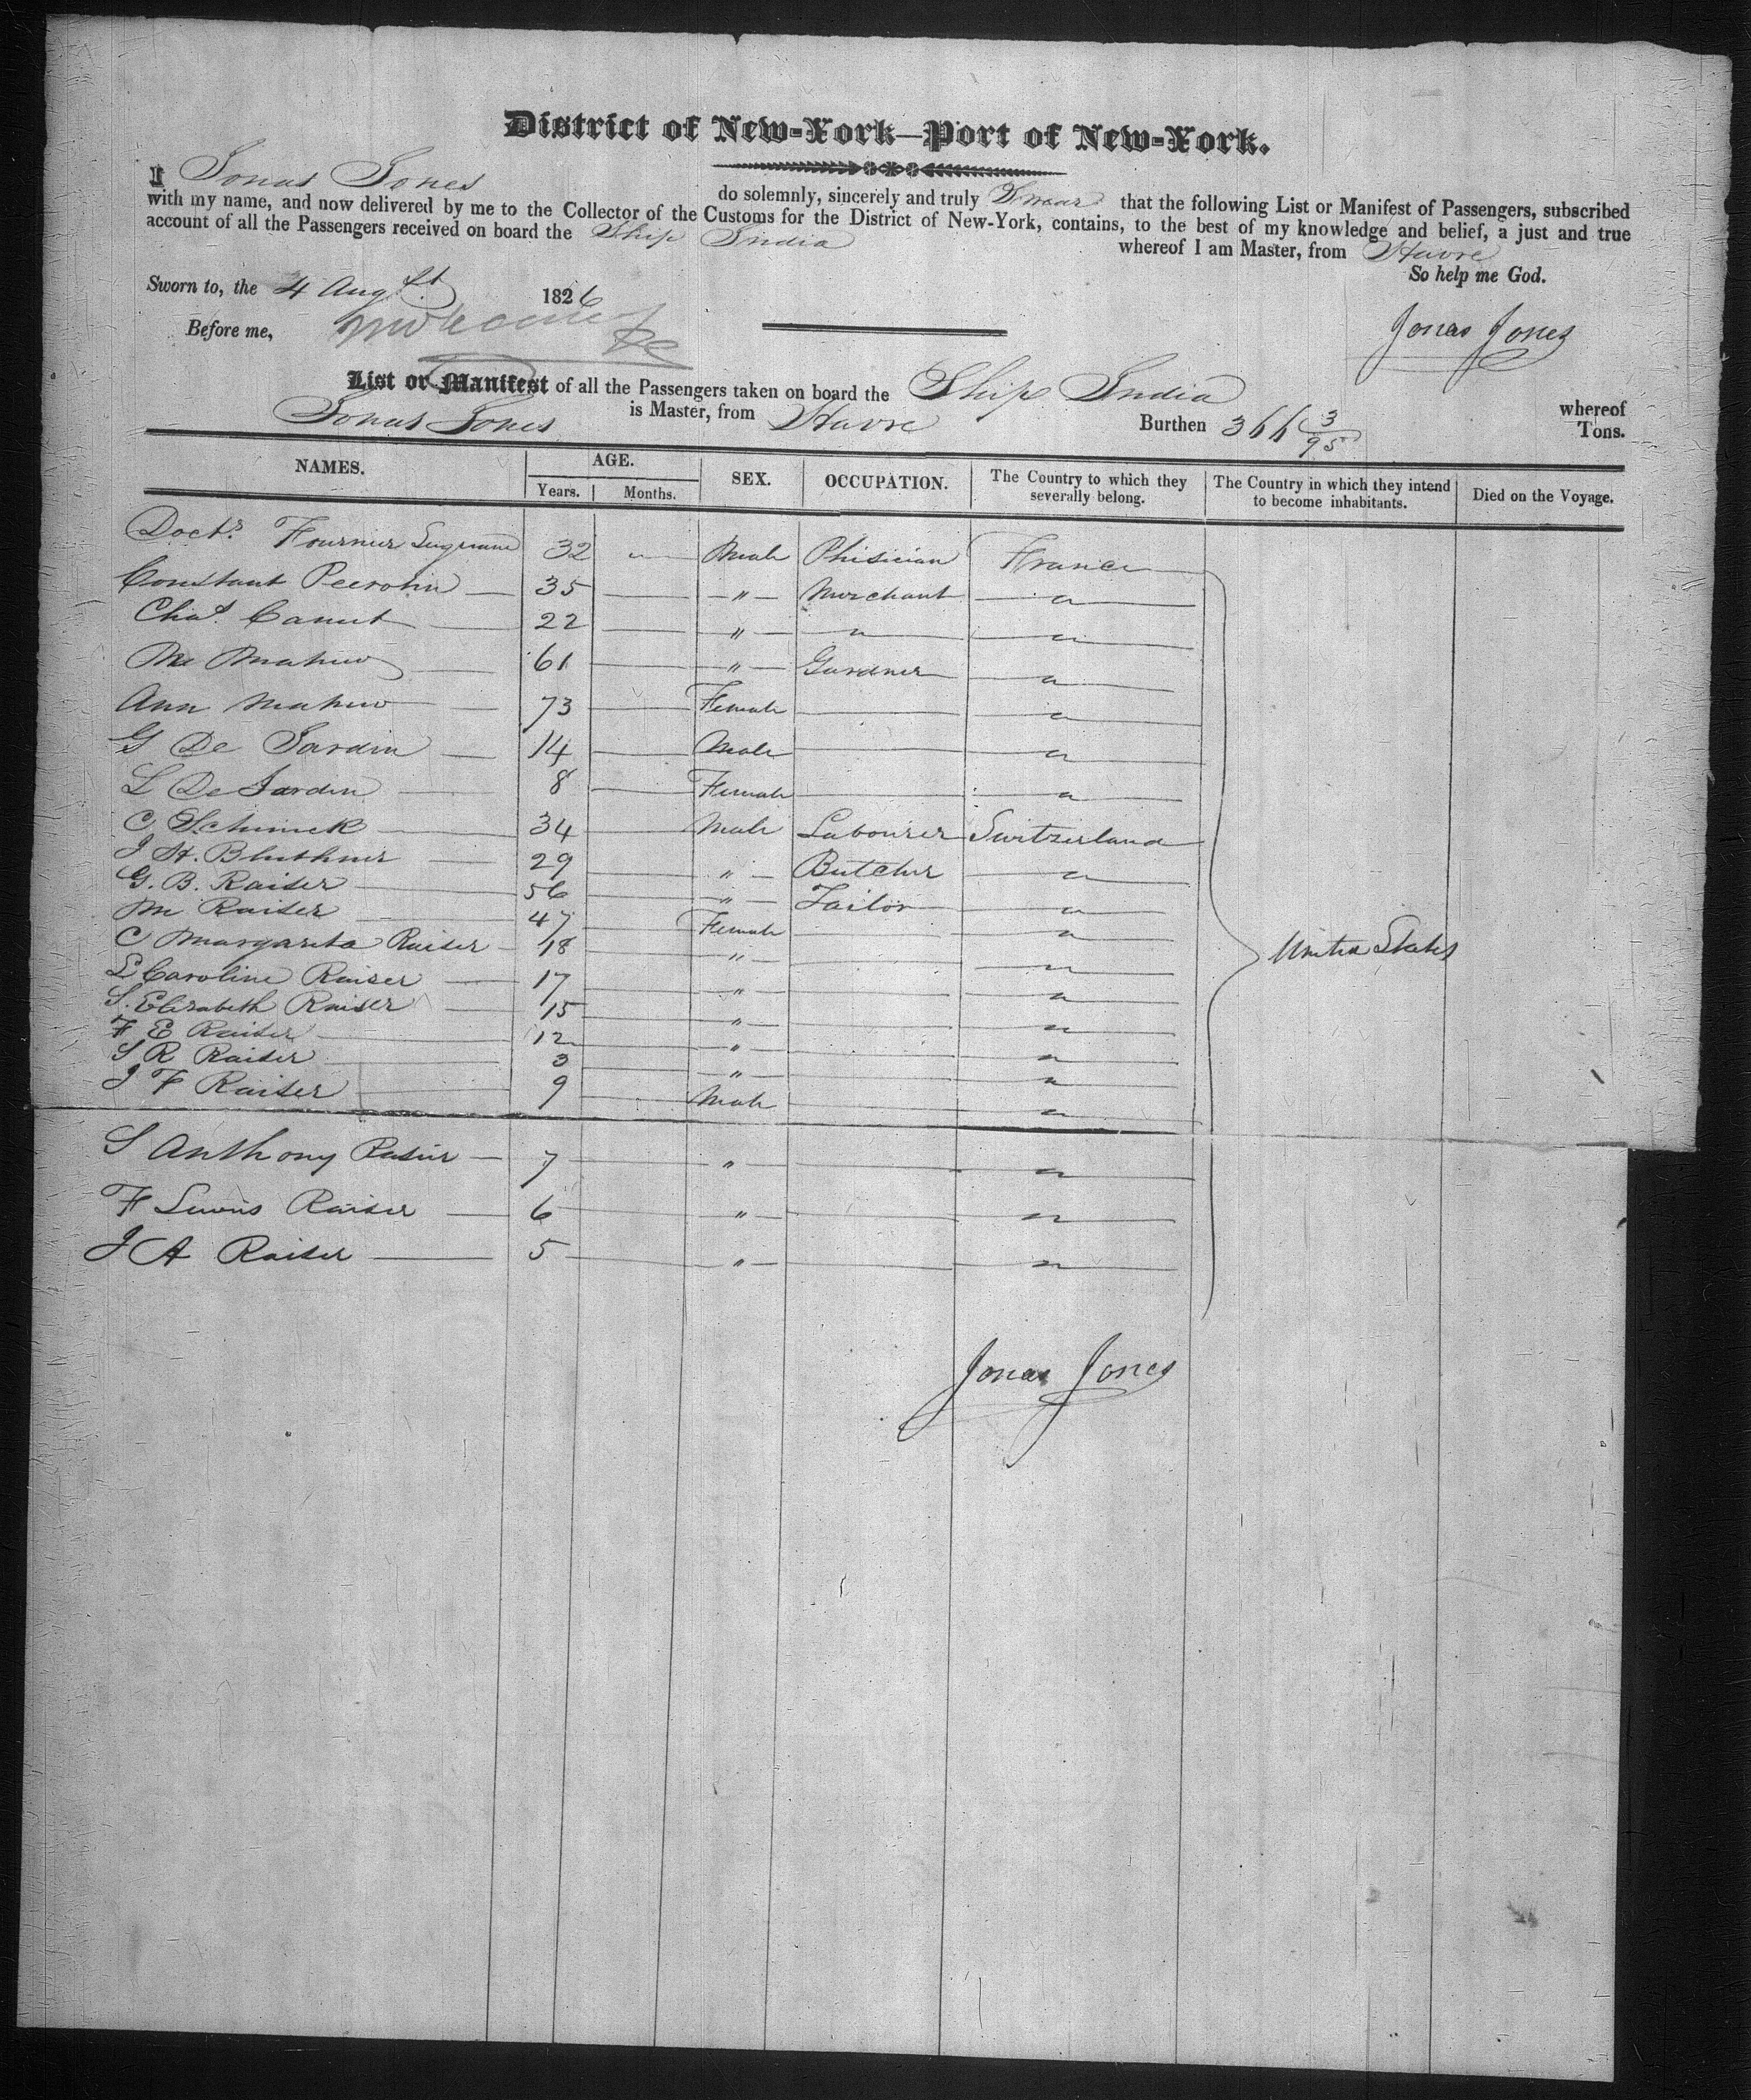 District of New-York—Port of New-York.
I Jonas Jones do solemnly, sincerely and truly Swear that the following List or Manifest of Passengers, subscribed
with my name, and now delivered by me to the Collector of the Customs for the District of New-York, contains, to the best of my knowledge and belief, a just and true
account of all the Passengers received on board the Ship India whereof I am Master, from Havre
So help me God.
Sworn to, the 4 Augst 1826
Before me,
Jonas Jones
List or Manifest of all the Passengers taken on board the Ship India whereof
Jonas Jones is Master, from Havre Burthen 366 3/95 Tons.
NAMES. AGE. SEX. OCCUPATION. The Country to which they severally belong. The Country in which they intend to become inhabitants. Died on the Voyage.
Years. Months.
Doctr. Fournier 32 " Male Phisician France
Constant 35 " Merchant "
Chas. Canut 22 " " "
Mr Mahew 61 " Gardner "
Ann Mahew 73 Female "
G De Jardin 14 Male "
L De Jardin 8 Female "
C Schimek 34 Male Labourer Switzerland
J H. Bluthner 29 " Butcher "
G. B. Raiser 56 " Tailor "
M Raiser 47 Female "
C Margarita Raiser 18 " " United States
L Caroline Raiser 17 " "
S. Elizabeth Raiser 15 " "
F E Raiser 12 " "
S R Raiser 3 " "
J F Raiser 9 Male "
S Anthony Raiser 7 " "
F Lewis Raiser 6 " "
J A Raiser 5 " "
Jonas Jones